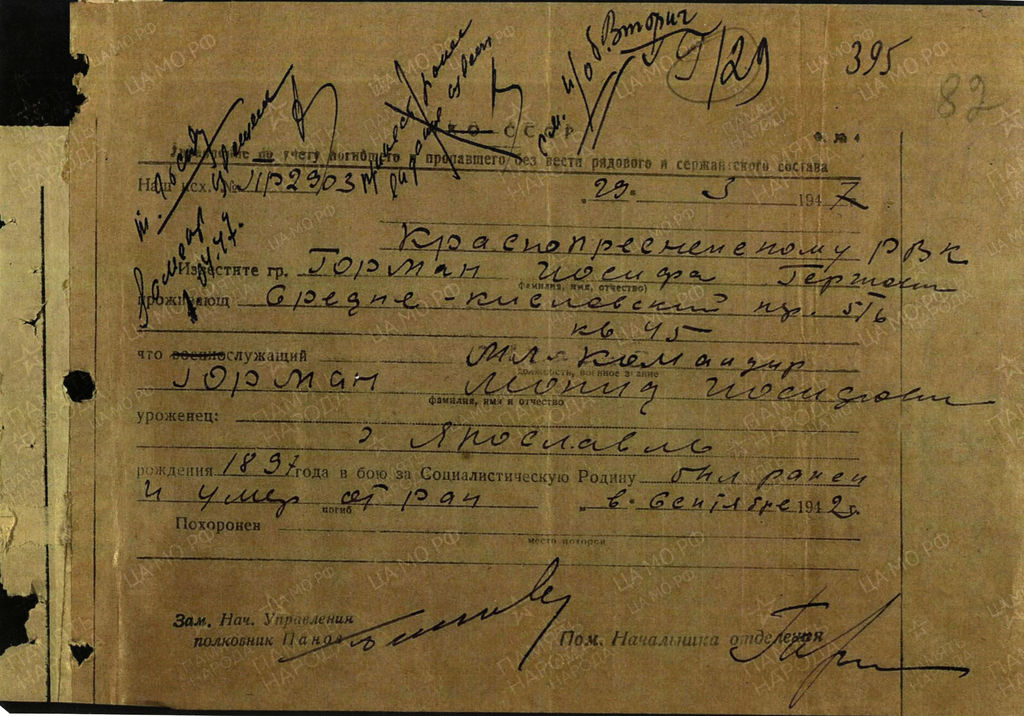 395
9/29
82
см. н/об. Вториг
СССР
Ф. № 4
Управление по учету погибшего и пропавшего без вести рядового и сержантского состава
Наш исх. № ПР2903 „29. 3 1947
Краснопресненскому РВК
Известите гр. Горман Иосифа
фамилия, имя, отчество)
проживающ Средне-Кисловский пр. 5/6
кв 45
что военнослужащий Мл. Командир
должность, военное звание
Горман Иосифович
фамилия, имя и отчество
уроженец:
г Ярославль
рождения 1897 года в бою за Социалистическую Родину был ранен
и умер от ран в. Сентябре 1942г.
погиб
Похоронен
место похорон
Зам. Нач. Управления
полковник
Пом. Начальника отделения